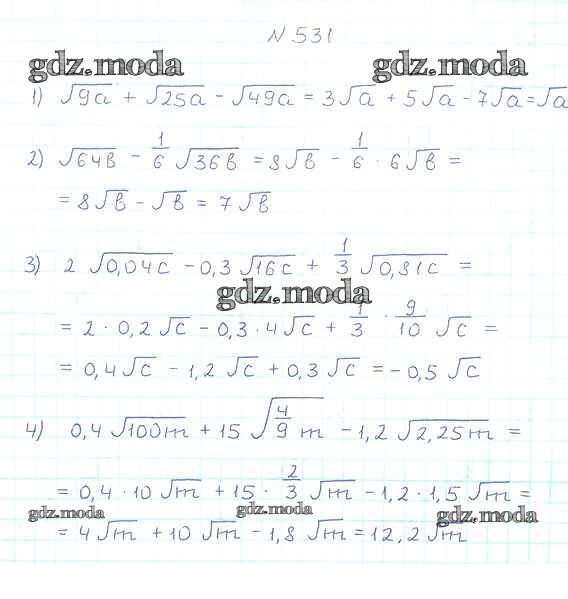 N 531
gdz.moda gdz.moda
1) √9a + √25a - √49a = 3√a + 5√a - 7√a = √a
2) √64b - 1/6 √36b = 8√b - 1/6 · 6√b =
= 8√b - √b = 7√b
3) 2 √0,04c - 0,3 √16c + 1/3 √0,81c =
gdz.moda
= 2 · 0,2 √c - 0,3 · 4 √c + 1/3 · 9/10 √c =
= 0,4 √c - 1,2 √c + 0,3 √c = - 0,5 √c
4) 0,4 √100m + 15 √4/9 m - 1,2 √2,25m =
= 0,4 · 10 √m + 15 · 2/3 √m - 1,2 · 1,5 √m =
gdz.moda gdz.moda gdz.moda
= 4 √m + 10 √m - 1,8 √m = 12,2 √m